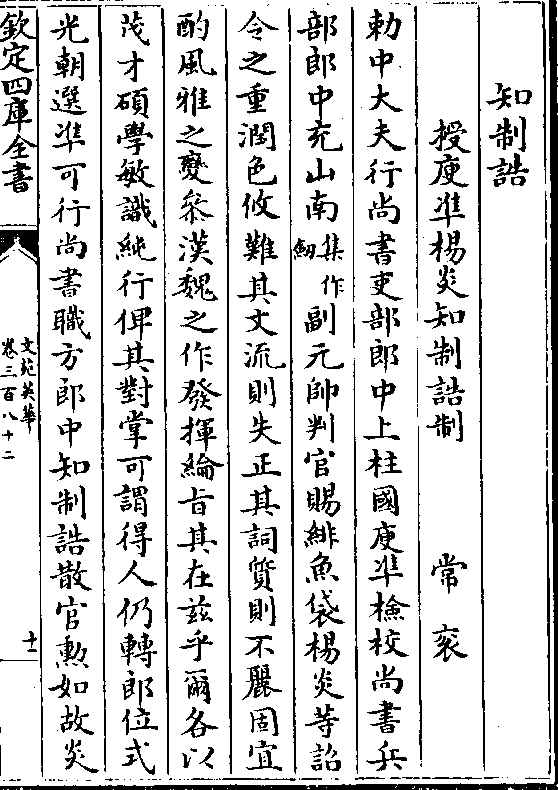 知制誥
授庾準楊炎知制誥制　常袞
勅中大夫行尚書吏部郎中上柱國庾準檢校尚書兵
部郎中充山南集作劒副元帥判官賜緋魚袋楊炎等詔
令之重潤色攸難其文流則失正其詞質則不麗固宜
酌風雅之變參漢魏之作發揮綸旨其在兹乎爾各以
茂才碩學敏識純行俾其對掌可謂得人仍轉郎位式
光朝選準可行尚書職方郎中知制誥散官勲如故炎
欽定四庫全書
文苑英華
卷三百八十二
十一